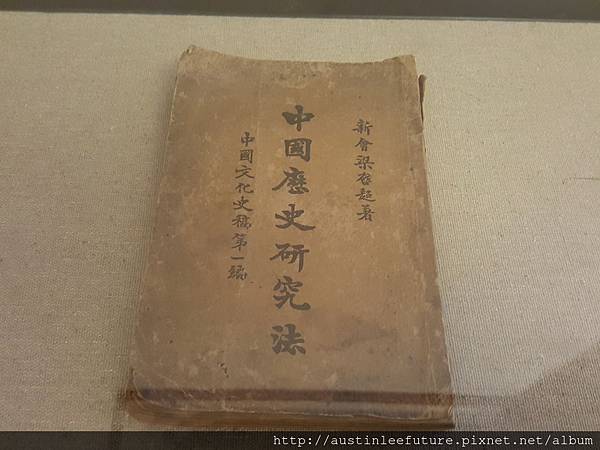 新會梁啓超著
中國歷史研究法
中國文化史稿第一編
http://austinleefuture.pixnet.net/album